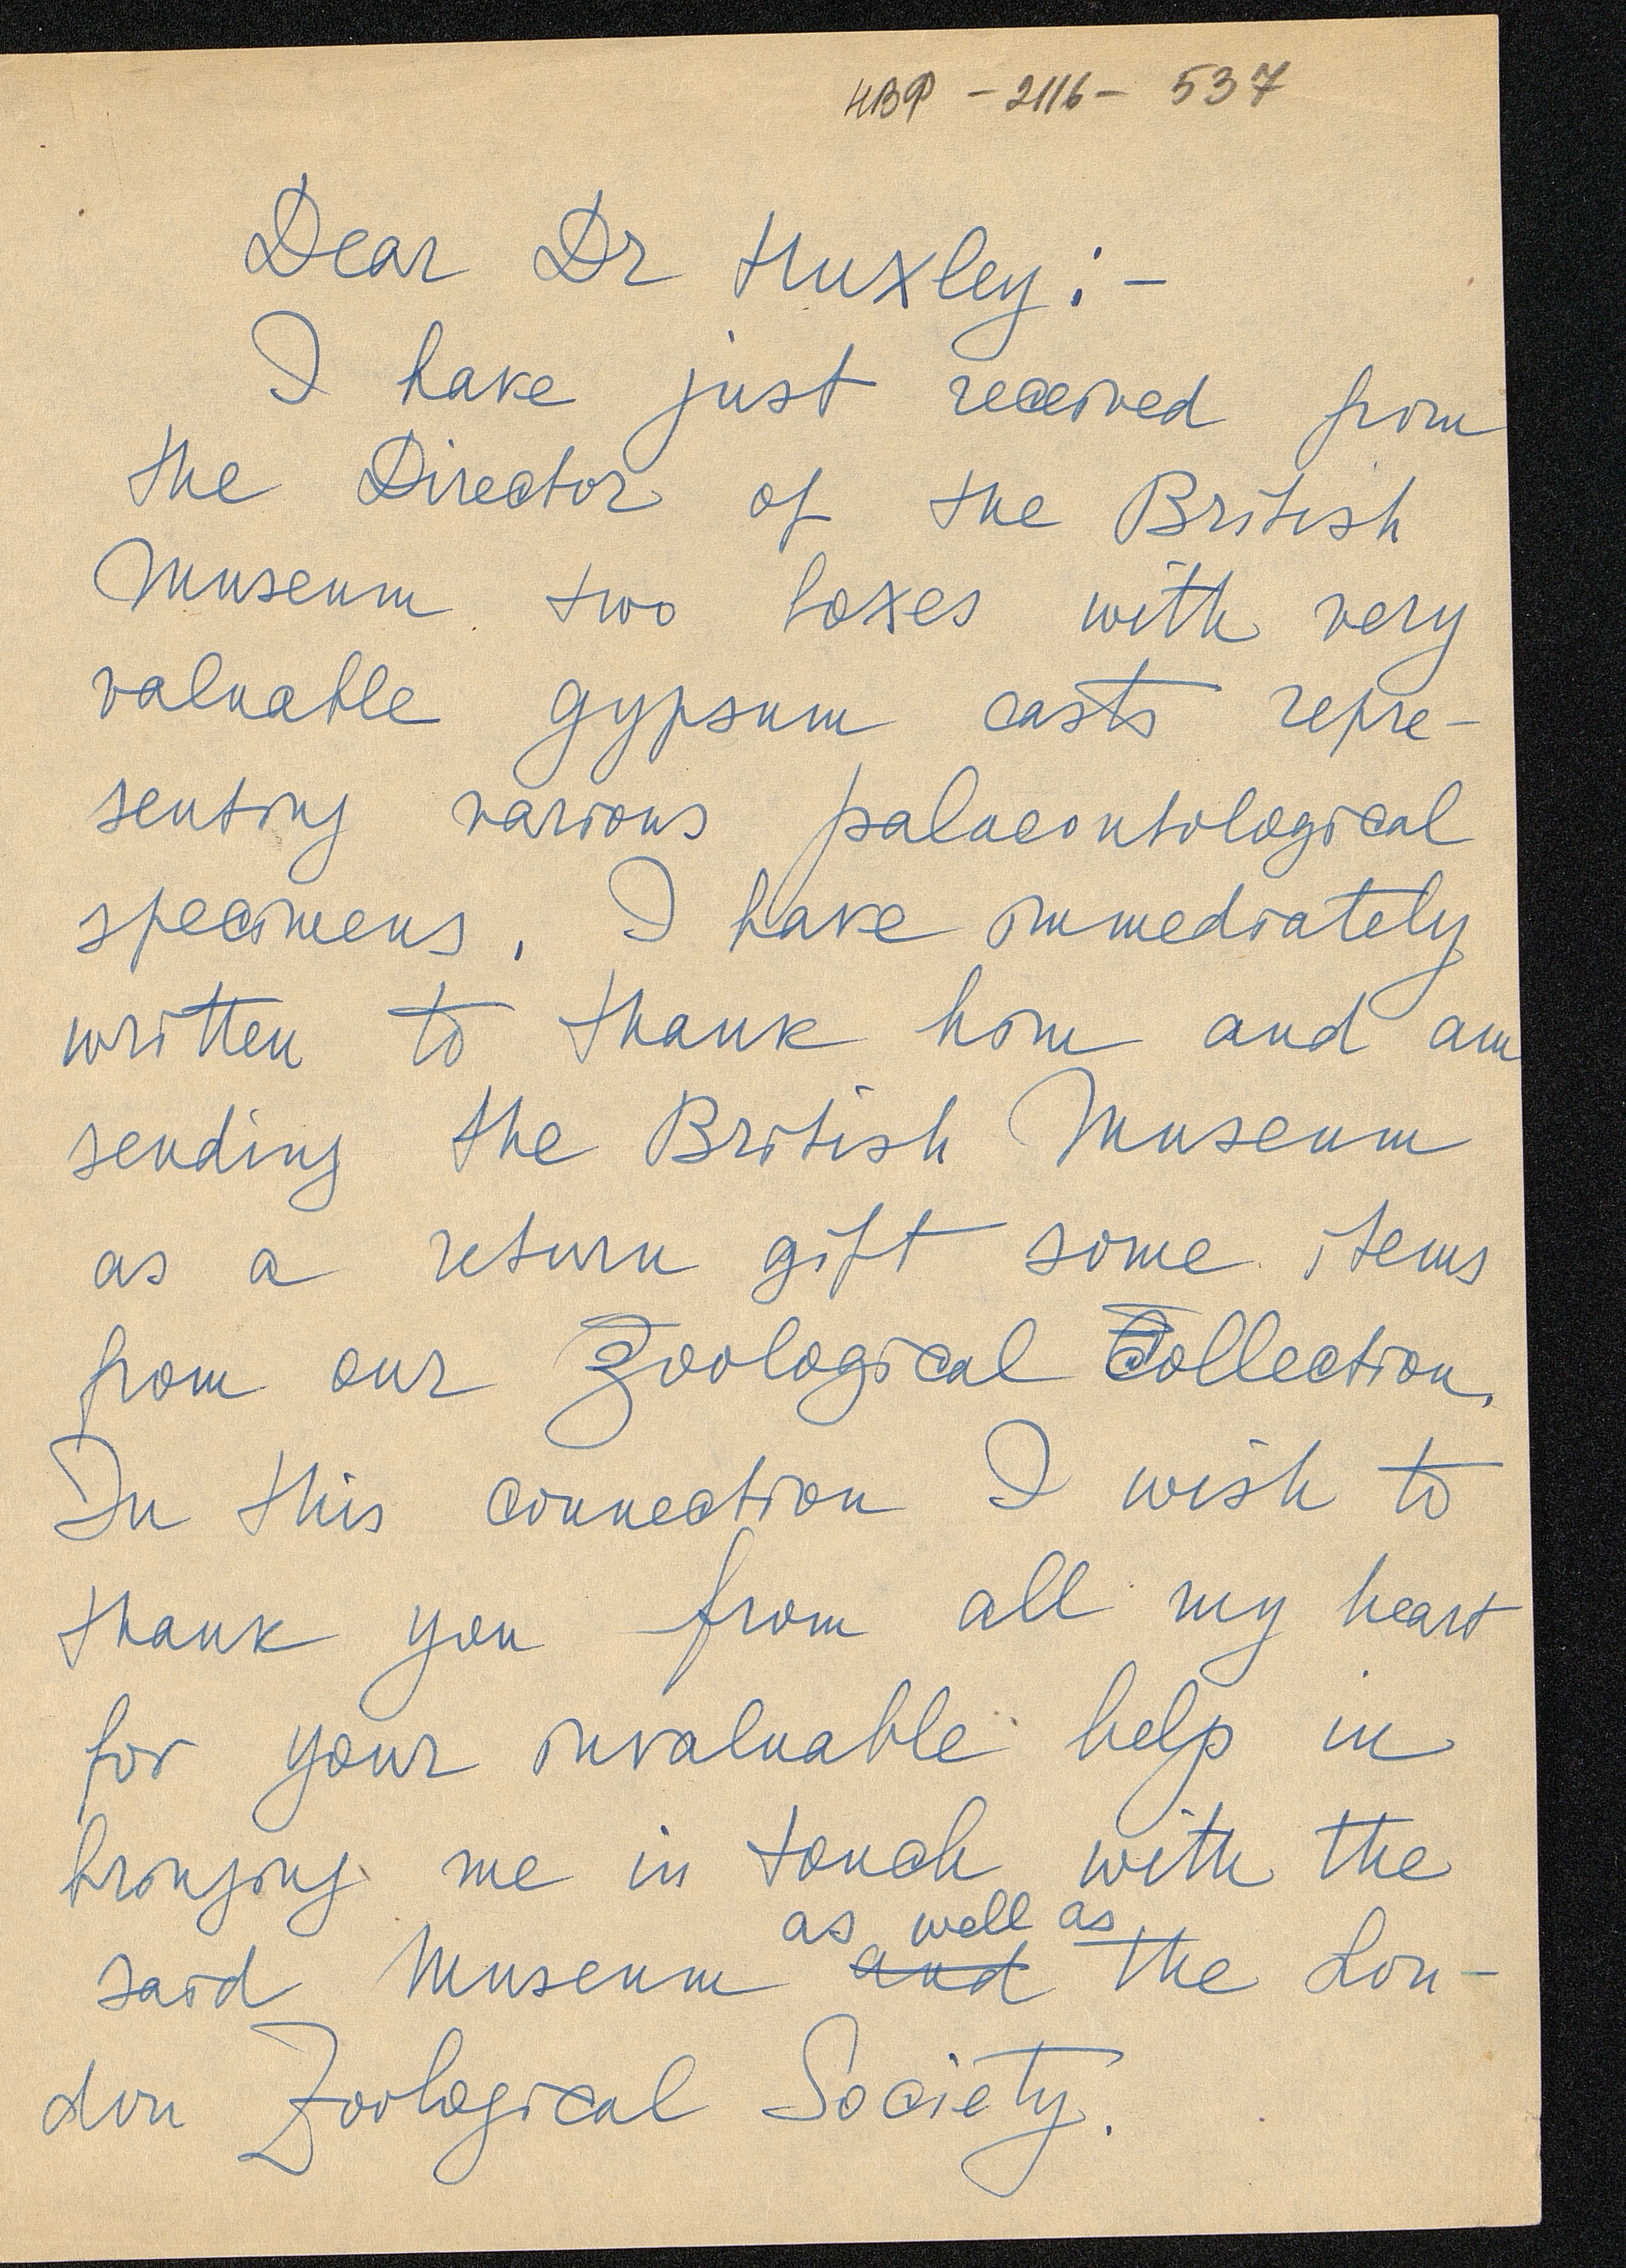 НВФ - 2116 - 537
Dear Dr Huxley: -
I have just received from
the Director of the British
Museum two boxes with very
valuable gypsum casts repre-
senting various palaeontological
specimens. I have immediately
written to thank him and am
sending the British Museum
as a return gift some items
from our Zoological Collection.
In this connection I wish to
thank you from all my heart
for your invaluable help in
bringing me in touch with the
as well as
said Museum and the Lon-
don Zoological Society.